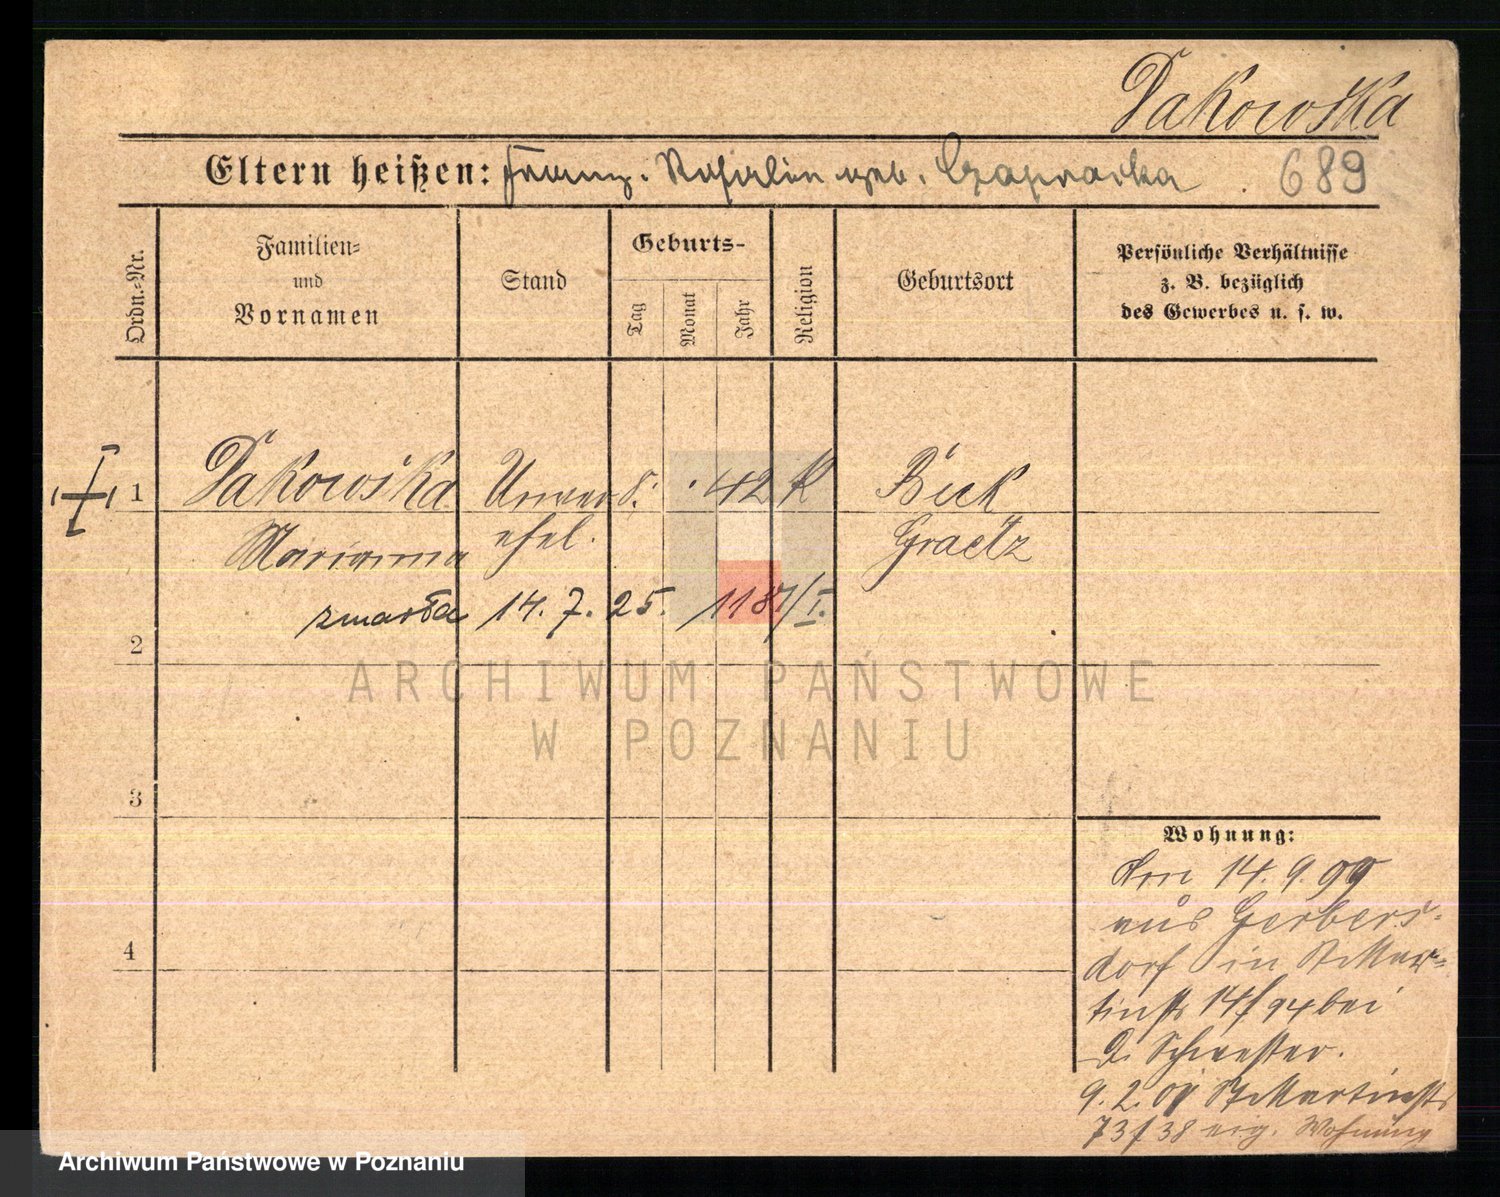 Dakowska
Eltern heißen: Franz. Rosalie geb. Czapracka 689
Ordn.=Nr.
Familien=
und
Vornamen
Stand
Geburts-
Tag
Monat
Jahr
Religion
Geburtsort
Persönliche Verhältnisse
z. B. bezüglich
des Gewerbes u. s. w.
1 Dakowska Unver 8. 42 K Buk
Marianna ehel. Graetz
zmarła 14. 7. 25. 1187/I.
2
3
4
ARCHIWUM PAŃSTWOWE
W POZNANIU
Wohnung:
14. 9. 99
aus Gerbers=
dorf in St Mar=
tinstr 14/94 bei
d. Schwester.
9. 2. St Martinstr
73/38 eig. Wohnung
Archiwum Państwowe w Poznaniu